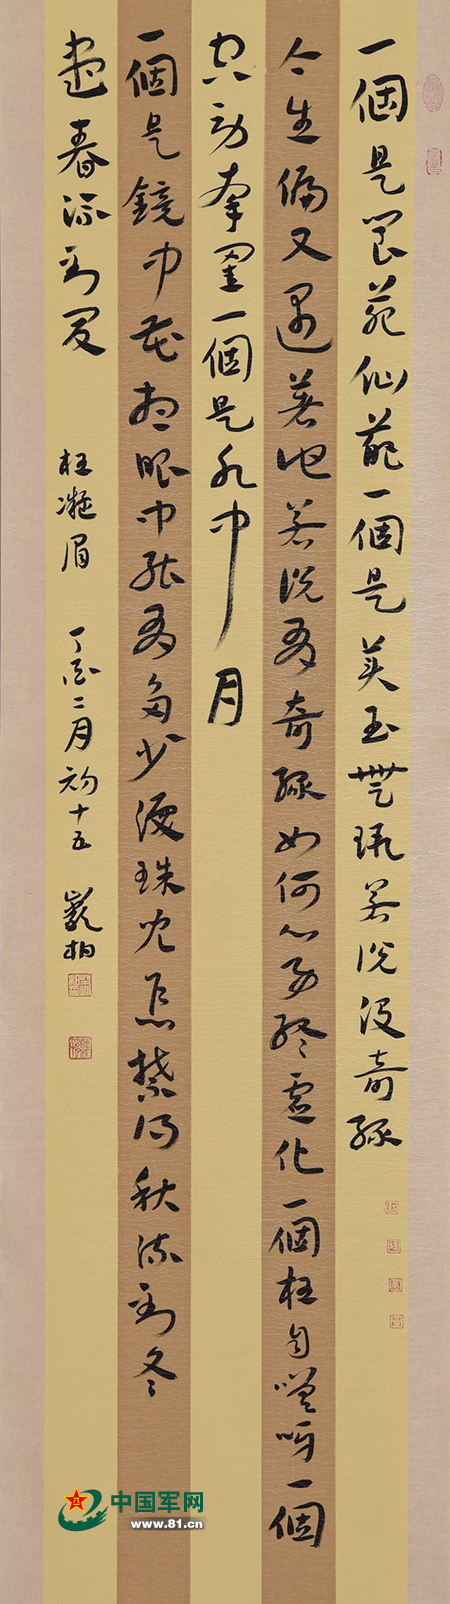 一個是閬苑仙葩一個是美玉無瑕若説没奇緣
今生偏又遇著他若説有奇緣如何心事終虛化一個枉自嗟呀一個
空勞牽掛一個是水中月
一個是鏡中花想眼中能有多少淚珠兒怎禁得秋流到冬
盡春流到夏
枉凝眉 丁酉二月初十五 柏
中国军网
www.81.cn